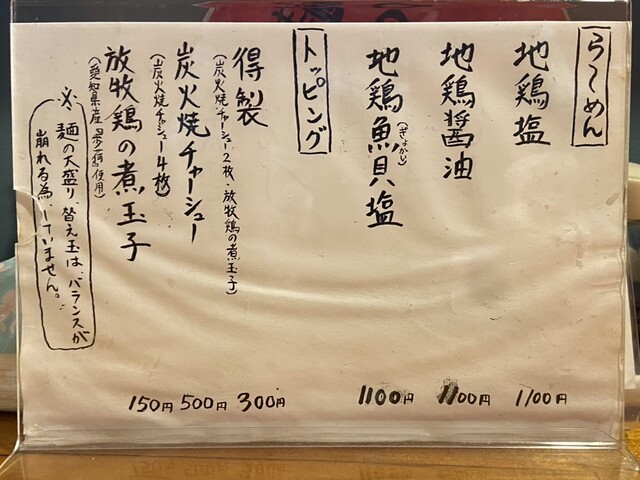 らーめん
地鶏塩
1100円
地鶏醤油
1100円
地鶏魚貝塩
(ぎょかい)
1100円
トッピング
得製
(炭火焼チャーシュー2枚・放牧鶏の煮玉子)
300円
炭火焼チャーシュー
(炭火焼チャーシュー4枚)
500円
放牧鶏の煮玉子
(愛知県産 使用)
150円
※麺の大盛り、替え玉は、バランスが
崩れる為、していません。